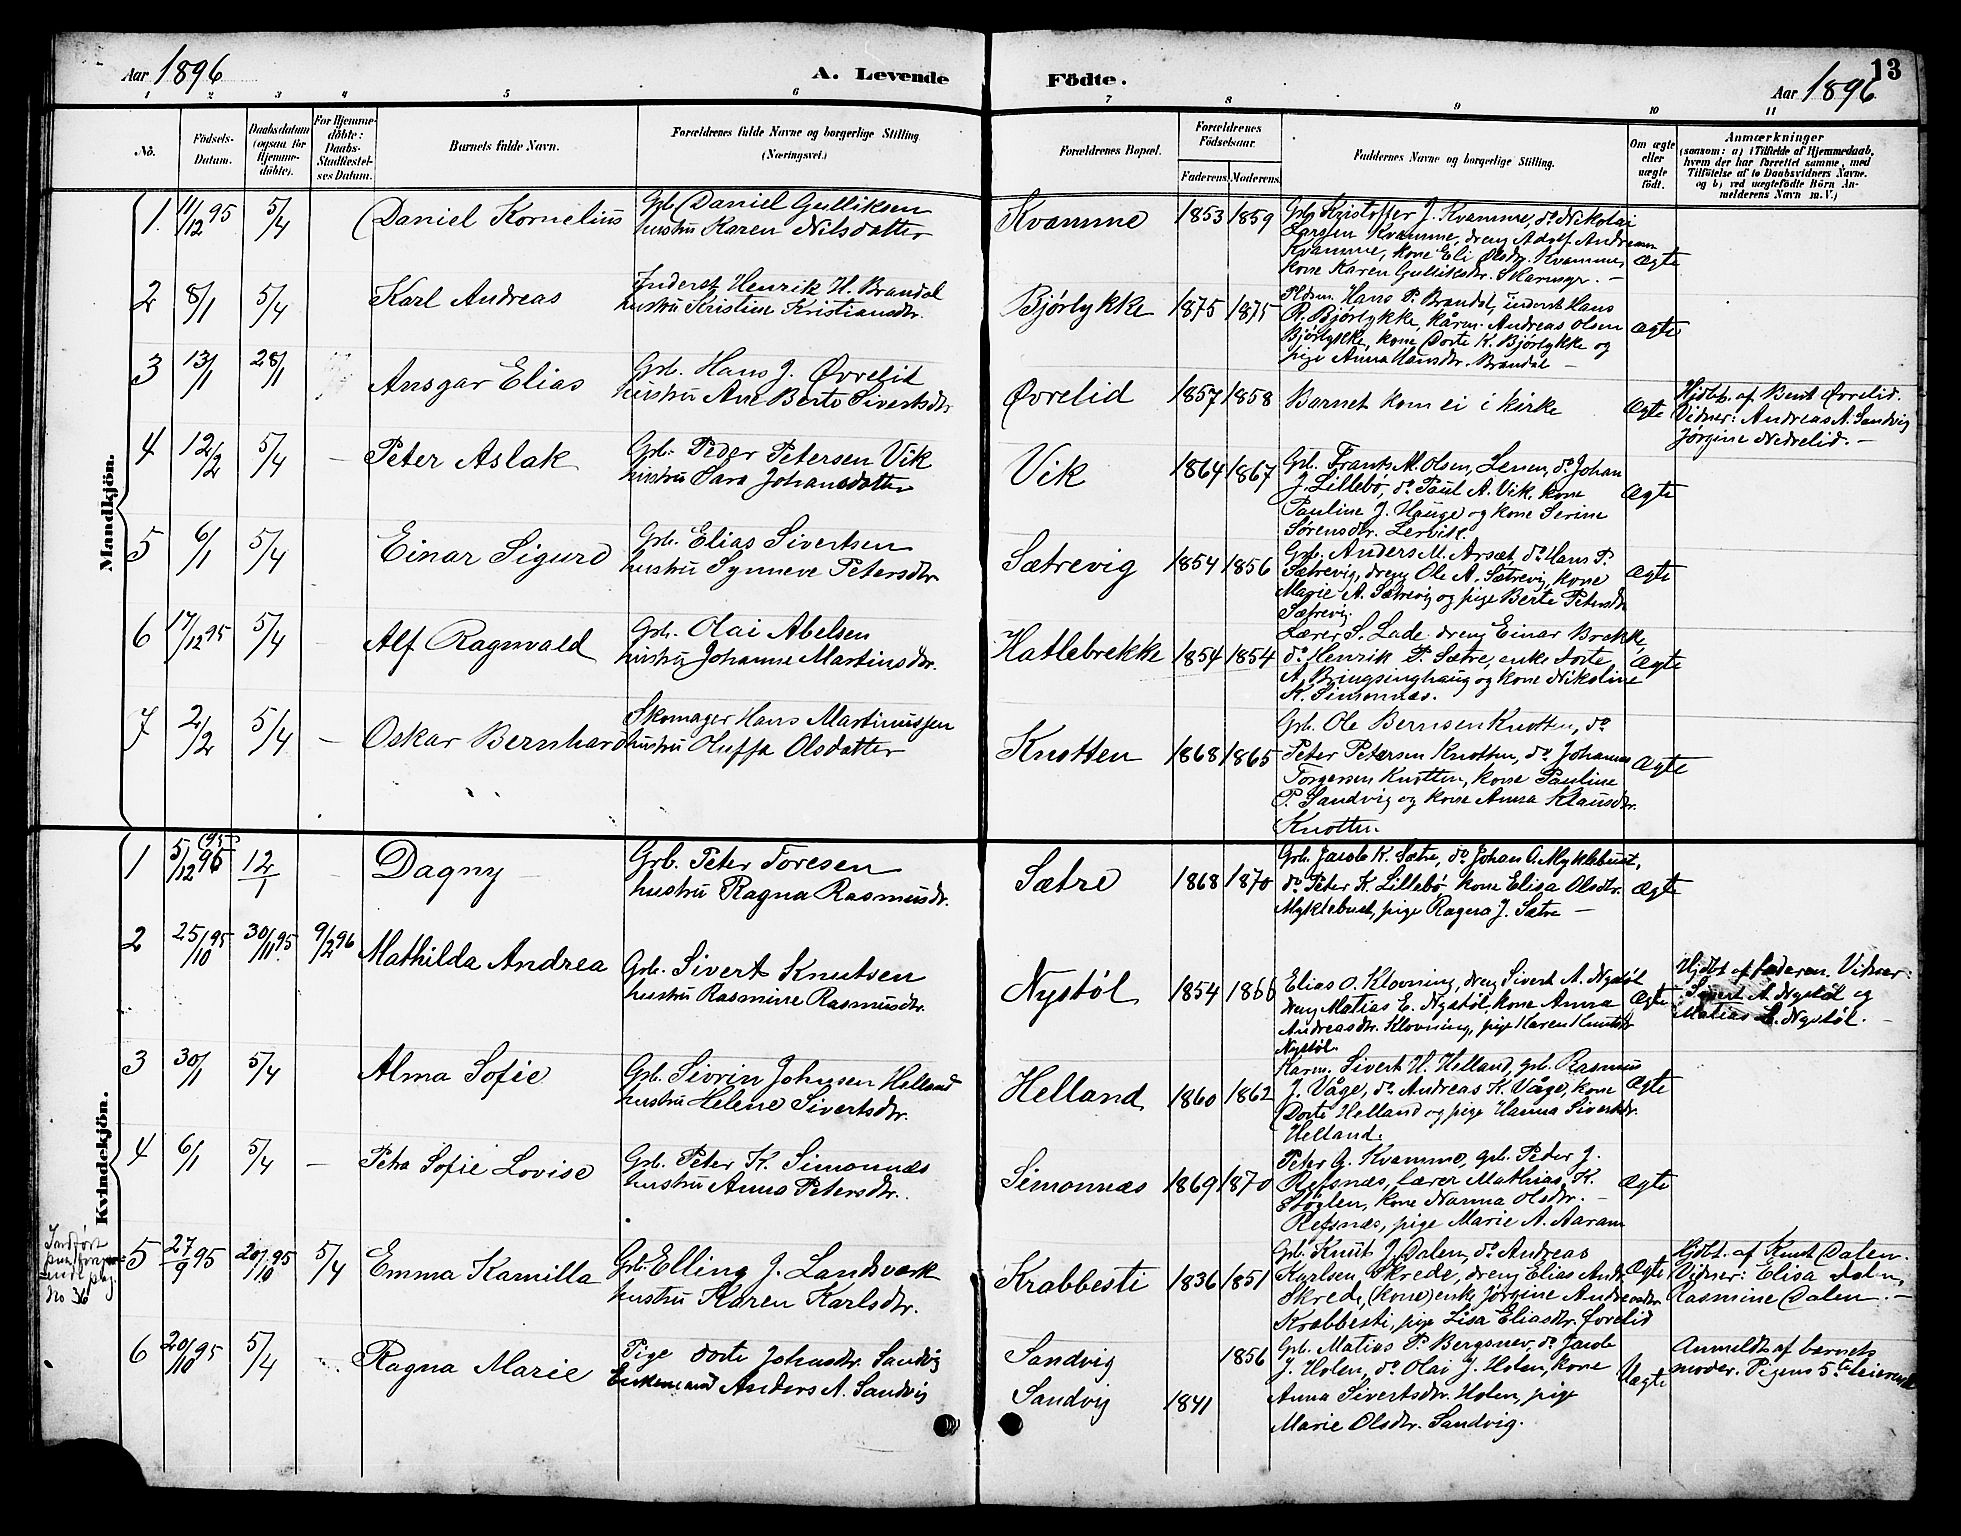 Aar 1896
A. Levende
Födte.
13
Aar 1896
1 2 3 4 5 6 7 8 9 10 11
No.
Födsels-
Datum.
Daabsdatum
(ogsaa for
Hjemme-
döbte).
For Hjemme-
döbte:
Daabs-
Stadfæstel-
ses Datum.
Barnets fulde Navn.
Forældrenes fulde Navne og borgerlige Stilling
(Næringsvei.)
Forældrenes Bopæl.
Forældrenes
Födselsaar.
Faderens. Moderens.
Faddernes Navne og borgerlige Stilling.
Om ægte
eller
uægte
födt.
Anmærkninger
(saasom: a) i Tilfælde af Hjemmedaab,
hvem der har forrettet samme, med
Tilföielse af to Daabsvidners Navne,
og b) ved uægtefödte Börn An-
melderens Navn m. V.)
Mandkjön.
1. 11/12 95 5/4 Daniel Kornelius
Grb. Daniel Gulliksen
hustru Karen Nilsdatter
Kvamme 1853 1859
Grb. Kristoffer J. Kvamme, do Nikolai
Larssen Kvamme, dreng Adolf Andreassen
Kvamme, kone Eli Olsdr. Kvamme,
kone Karen Gulliksdr. Skarmyr. —
Ægte
2 8/1 5/4 Karl Andreas
Inderst Henrik H. Brandal
hustru Kristine Kristiansdr.
Bjørlykke 1875 1875
Pldsm. Hans P. Brandal, inderst Hans
R. Bjørlykke, kårm. Andreas Olsen
Bjørlykke, kone Dorte K. Bjørlykke og
pige Anna Hansdr. Brandal —
Ægte
3 13/1 28/1 Ansgar Elias
Grb. Hans J. Øvrelid
hustru Ane Berte Sivertsdr.
Øvrelid 1857 1858
Barnet kom ei i kirke
Ægte
Hjdbt. af Bent Øvrelid.
Vidner: Andreas A. Sandvig
Jørgine Nedrelid. —
4 12/2 5/4 — Peter Aslak
Grb. Peder Petersen Vik
hustru Sara Johansdatter
Vik 1864 1867
Grb. Frants M. Olsen, Leren, do Johan
J. Lillebø, do Paul A. Vik, kone
Pauline J. Hauge og kone Serine
Sørensdr. Lervik.
Ægte
5 6/1 5/4 Einar Sigurd
Grb. Elias Sivertsen
hustru Synneve Petersdr.
Sætrevig 1854 1856
Grb. Anders M. Årsæt, do Hans P.
Sætrevig, dreng Ole A. Sætrevig, kone
Marie A. Sætrevig og pige Berte Petersdr.
Sætrevig.
Ægte
6 17/12 95 5/4 — Alf Ragnvald
Grb. Olai Abelsen
hustru Johanne Martinsdr.
Hatlebrekke 1854 1854
Lærer S. Lade. dreng Einar Brekke,
do Henrik P. Sætre, enke Dorte
A. Bringsinghaug og kone Nikoline
K. Simonnæs.
Ægte
7 2/2 5/4 — Oskar Bernhard
Skomager Hans Martinussen
hustru Oluffa Olsdatter
Knotten 1868 1865
Grb. Ole Bernsen Knotten, do
Peter Petersen Knotten, do Johannes
Torgersen Knotten, kone Pauline
P. Sandvig og kone Anna Klausdr.
Knotten.
Ægte
Kvindekjön.
1 5/12 96 (95) 12/1 — Dagny —
Grb. Peter Toresen
hustru Ragna Rasmusdr.
Sætre 1868 1870
Grb. Jacob K. Sætre, do Johan A. Myklebust,
do Peter K. Lillebø, kone Elisa Olsdtr.
Myklebust, pige Ragna J. Sætre —
Ægte
2 25/10 95 30/11 95 9/2 96 Mathilda Andrea
Grb. Sivert Knutsen
hustru Rasmine Rasmusdr.
Nystøl 1854 1866
Elias O. Klovning, dreng Sivert A. Nystøl
dreng Matias E. Nystøl, kone Anna
Andreasdr. Klovning, pige Karen Knutsdr.
Nystøl.
Ægte
Hjdbt af faderen. Vidner:
Sivert A. Nystøl og
Matias E. Nystøl. —
3 30/1 5/4 Alma Sofie
Grb. Sivrin Johnsen Helland
hustru Helene Sivertsdr.
Helland 1860 1862
Karm. Sivert H. Helland, grb. Rasmus
J. Våge, do Andreas K. Våge, kone
Dorte Helland og pige Hanna Sivertsdr.
Helland.
Ægte
4 6/1 5/4 — Petra Sofie Lovise
Grb. Peter K. Simonnæs
hustru Anna Petersdr.
Simonnæs 1869 1870
Peter G. Kvamme, grb. Peder J.
Refsnæs, lærer Mathias K.
Støylen, kone Nanna Olsdr. —
Refsnæs, pige Marie A. Aaram
Ægte
Indført
paa
No 36
5 27/9 95 20/10 95 5/4 Emma Kamilla
Grb. Elling J. Landsverk
hustru Karen Karlsdr.
Krabbesti 1836 1851
Grb. Knut J. Dalen, do Andreas
Karlsen Skrede, dreng Elias Andr.
Skrede, (kone) enke Jørgine Andreasdr.
Krabbesti, pige Lisa Eliasdr. Førelid
Ægte
Hjdbt. af Knut Dalen.
Vidner: Elisa Dalen,
Rasmine Dalen. —
6 20/10 95 5/4 Ragna Marie
Pige Dorte Johnsdr. Sandvig
Enkemand Anders A. Sandvig
Sandvig 1856
Sandvig 1841
Grb. Matias P. Bergsnev, do Jacob
J. Holen, do Olai J. Holen, kone
Anna Sivertsdr. Holen, pige
Marie Olsdtr. Sandvig.
Uægte
Anmeldt af barnets
moder. Pigens 5te leiermaal